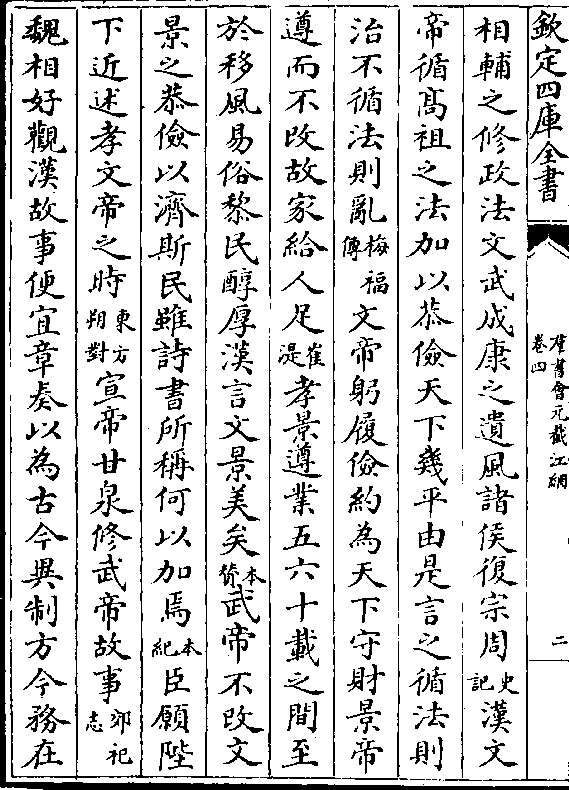 欽定四庫全書
羣書會元截江網
卷四
二
相輔之修政法文武成康之遺風諸侯復宗周史記漢文
帝循髙祖之法加以恭儉天下幾平由是言之循法則
治不循法則亂梅福傳文帝躬履儉約為天下守財景帝
遵而不改故家給人足崔湜孝景遵業五六十載之間至
於移風易俗黎民醇厚漢言文景美矣本贊武帝不改文
景之恭儉以濟斯民雖詩書所稱何以加焉本紀臣願陛
下近述孝文帝之時東方朔對宣帝甘泉修武帝故事郊祀志
魏相好觀漢故事便宜章奏以為古今異制方今務在